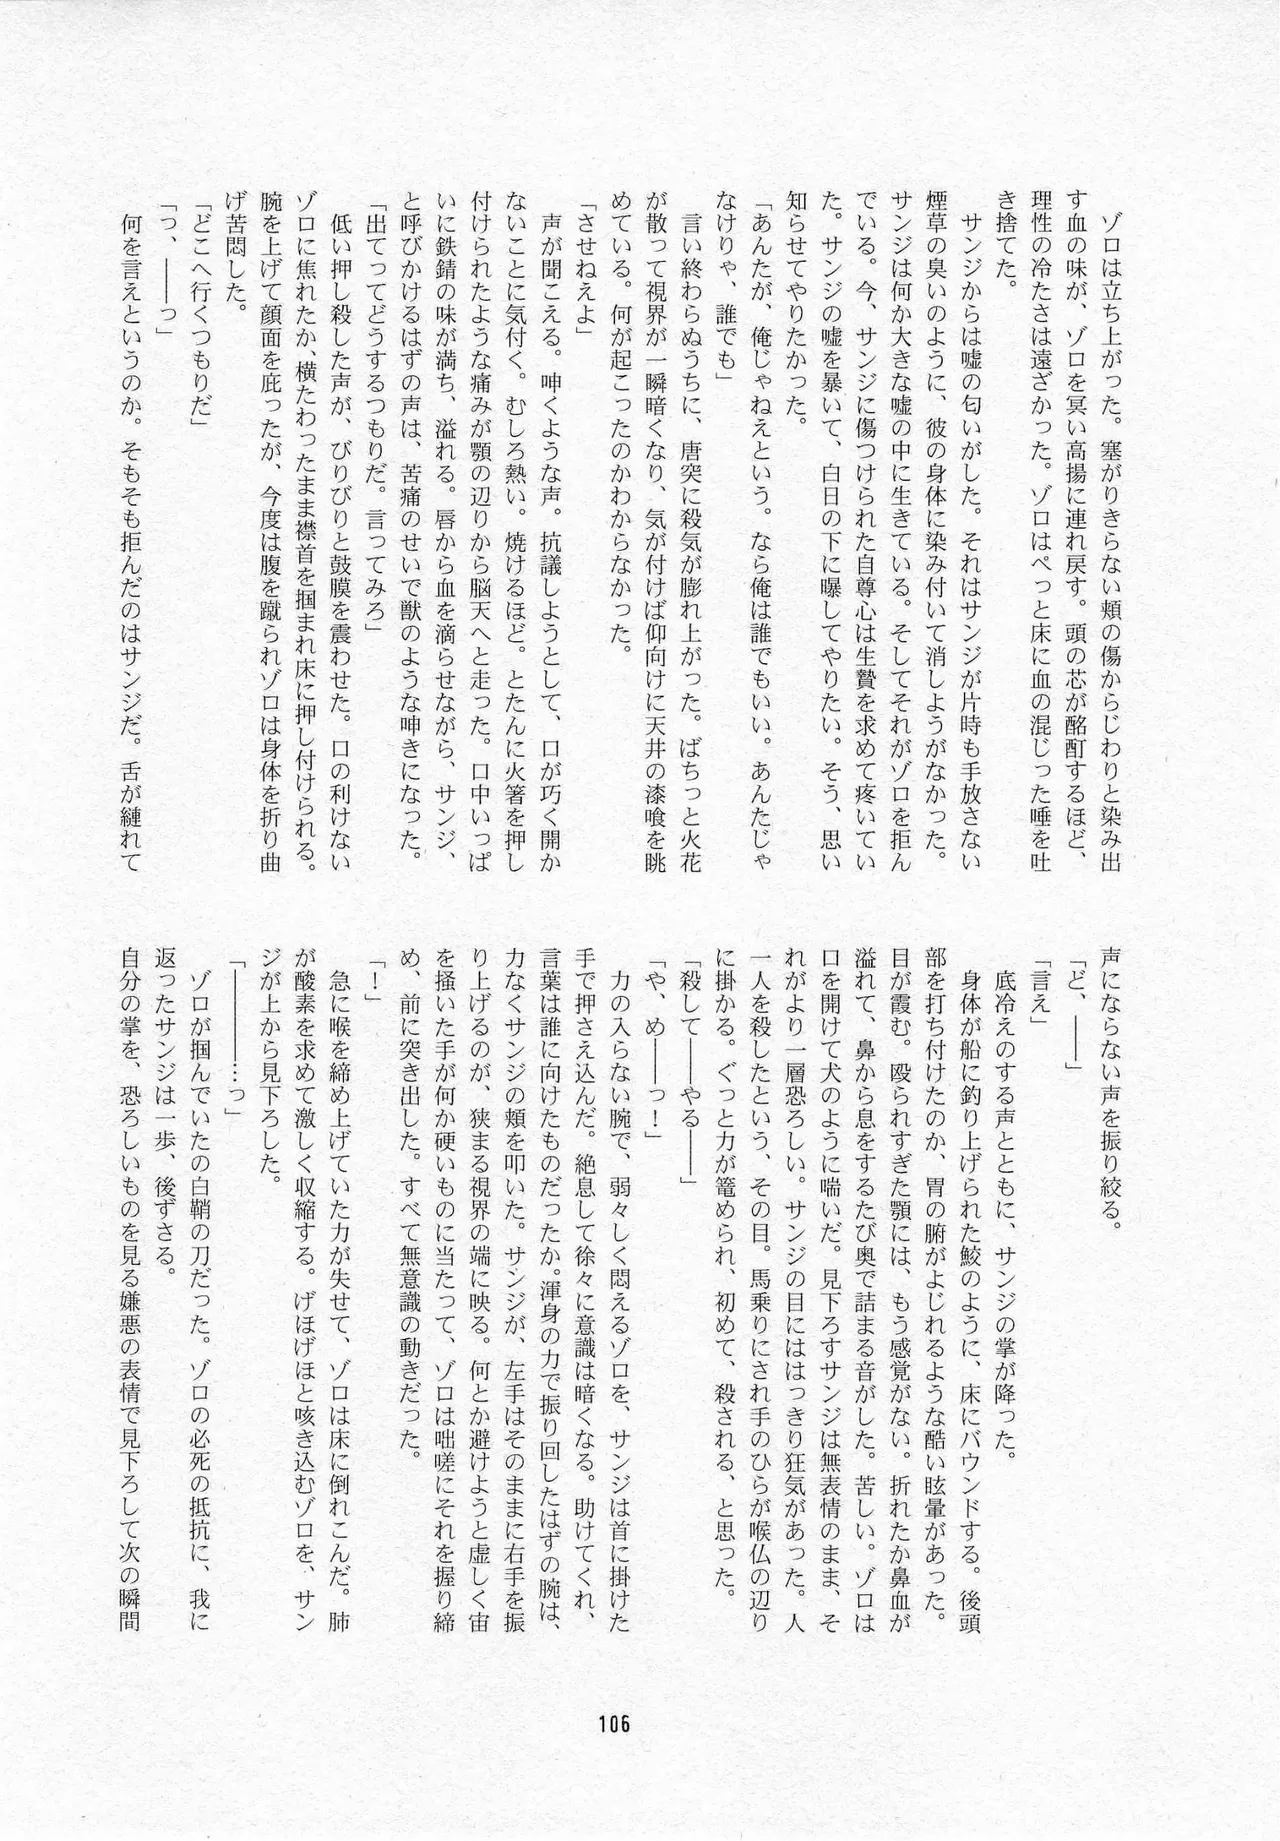 ゾロは立ち上がった。塞がりきらない頬の傷からじわりと染み出
す血の味が、ゾロを冥い高揚に連れ戻す。頭の芯が酩酊するほど、
理性の冷たさは遠ざかった。ゾロはぺっと床に血の混じった唾を吐
き捨てた。
　サンジからは嘘の匂いがした。それはサンジが片時も手放さない
煙草の臭いのように、彼の身体に染み付いて消しようがなかった。
サンジは何か大きな嘘の中に生きている。そしてそれがゾロを拒ん
でいる。今、サンジに傷つけられた自尊心は生贄を求めて疼いてい
た。サンジの嘘を暴いて、白日の下に曝してやりたい。そう、思い
知らせてやりたかった。
「あんたが、俺じゃねえという。なら俺は誰でもいい。あんたじゃ
なけりゃ、誰でも」
　言い終わらぬうちに、唐突に殺気が膨れ上がった。ばちっと火花
が散って視界が一瞬暗くなり、気が付けば仰向けに天井の漆喰を眺
めている。何が起こったのかわからなかった。
「させねえよ」
　声が聞こえる。呻くような声。抗議しようとして、口が巧く開か
ないことに気付く。むしろ熱い。焼けるほど。とたんに火箸を押し
付けられたような痛みが顎の辺りから脳天へと走った。口中いっぱ
いに鉄錆の味が満ち、溢れる。唇から血を滴らせながら、サンジ、
と呼びかけるはずの声は、苦痛のせいで獣のような呻きになった。
「出てってどうするつもりだ。言ってみろ」
　低い押し殺した声が、びりびりと鼓膜を震わせた。口の利けない
ゾロに焦れたか、横たわったまま襟首を掴まれ床に押し付けられる。
腕を上げて顔面を庇ったが、今度は腹を蹴られゾロは身体を折り曲
げ苦悶した。
「どこへ行くつもりだ」
「っ、――っ」
　何を言えというのか。そもそも拒んだのはサンジだ。舌が縺れて
声にならない声を振り絞る。
「ど、――」
「言え」
　底冷えのする声とともに、サンジの掌が降った。
　身体が船に釣り上げられた鮫のように、床にバウンドする。後頭
部を打ち付けたのか、胃の腑がよじれるような酷い眩暈があった。
目が霞む。殴られすぎた顎には、もう感覚がない。折れたか鼻血が
溢れて、鼻から息をするたび奥で詰まる音がした。苦しい。ゾロは
口を開けて犬のように喘いだ。見下ろすサンジは無表情のまま、そ
れがより一層恐ろしい。サンジの目にははっきり狂気があった。人
一人を殺したという、その目。馬乗りにされ手のひらが喉仏の辺り
に掛かる。ぐっと力が篭められ、初めて、殺される、と思った。
「殺して――やる――」
「や、め――っ！」
　力の入らない腕で、弱々しく悶えるゾロを、サンジは首に掛けた
手で押さえ込んだ。絶息して徐々に意識は暗くなる。助けてくれ、
言葉は誰に向けたものだったか。渾身の力で振り回したはずの腕は、
力なくサンジの頬を叩いた。サンジが、左手はそのままに右手を振
り上げるのが、狭まる視界の端に映る。何とか避けようと虚しく宙
を掻いた手が何か硬いものに当たって、ゾロは咄嗟にそれを握り締
め、前に突き出した。すべて無意識の動きだった。
「！」
　急に喉を締め上げていた力が失せて、ゾロは床に倒れこんだ。肺
が酸素を求めて激しく収縮する。げほげほと咳き込むゾロを、サン
ジが上から見下ろした。
「――――…っ」
　ゾロが掴んでいたの白鞘の刀だった。ゾロの必死の抵抗に、我に
返ったサンジは一歩、後ずさる。
自分の掌を、恐ろしいものを見る嫌悪の表情で見下ろして次の瞬間
106